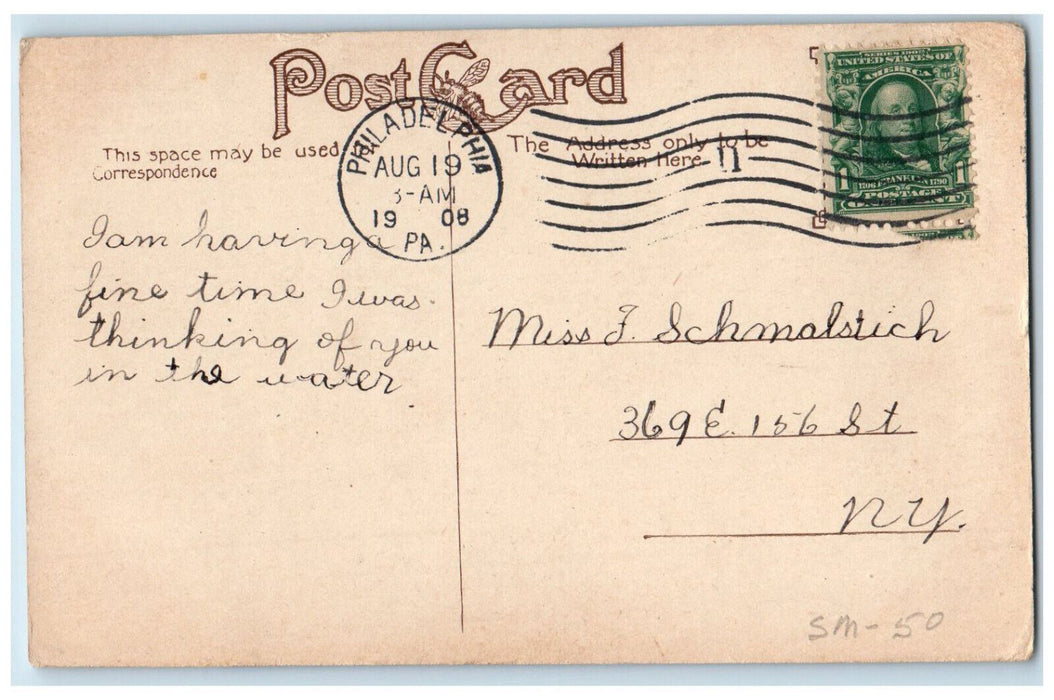 Post Card
This space may be used
Correspondence
The Address only to be
Written Here
PHILADELPHIA
AUG 19
3-AM
1908
PA.
11
SERIES 1902
UNITED STATES OF
AMERICA
1706 FRANKLIN 1790
1 POSTAGE 1
ONE CENT
I am having a
fine time I was
thinking of you
in the water
Miss F. Schmalstich
369 E. 156 St
N.Y.
SM-50